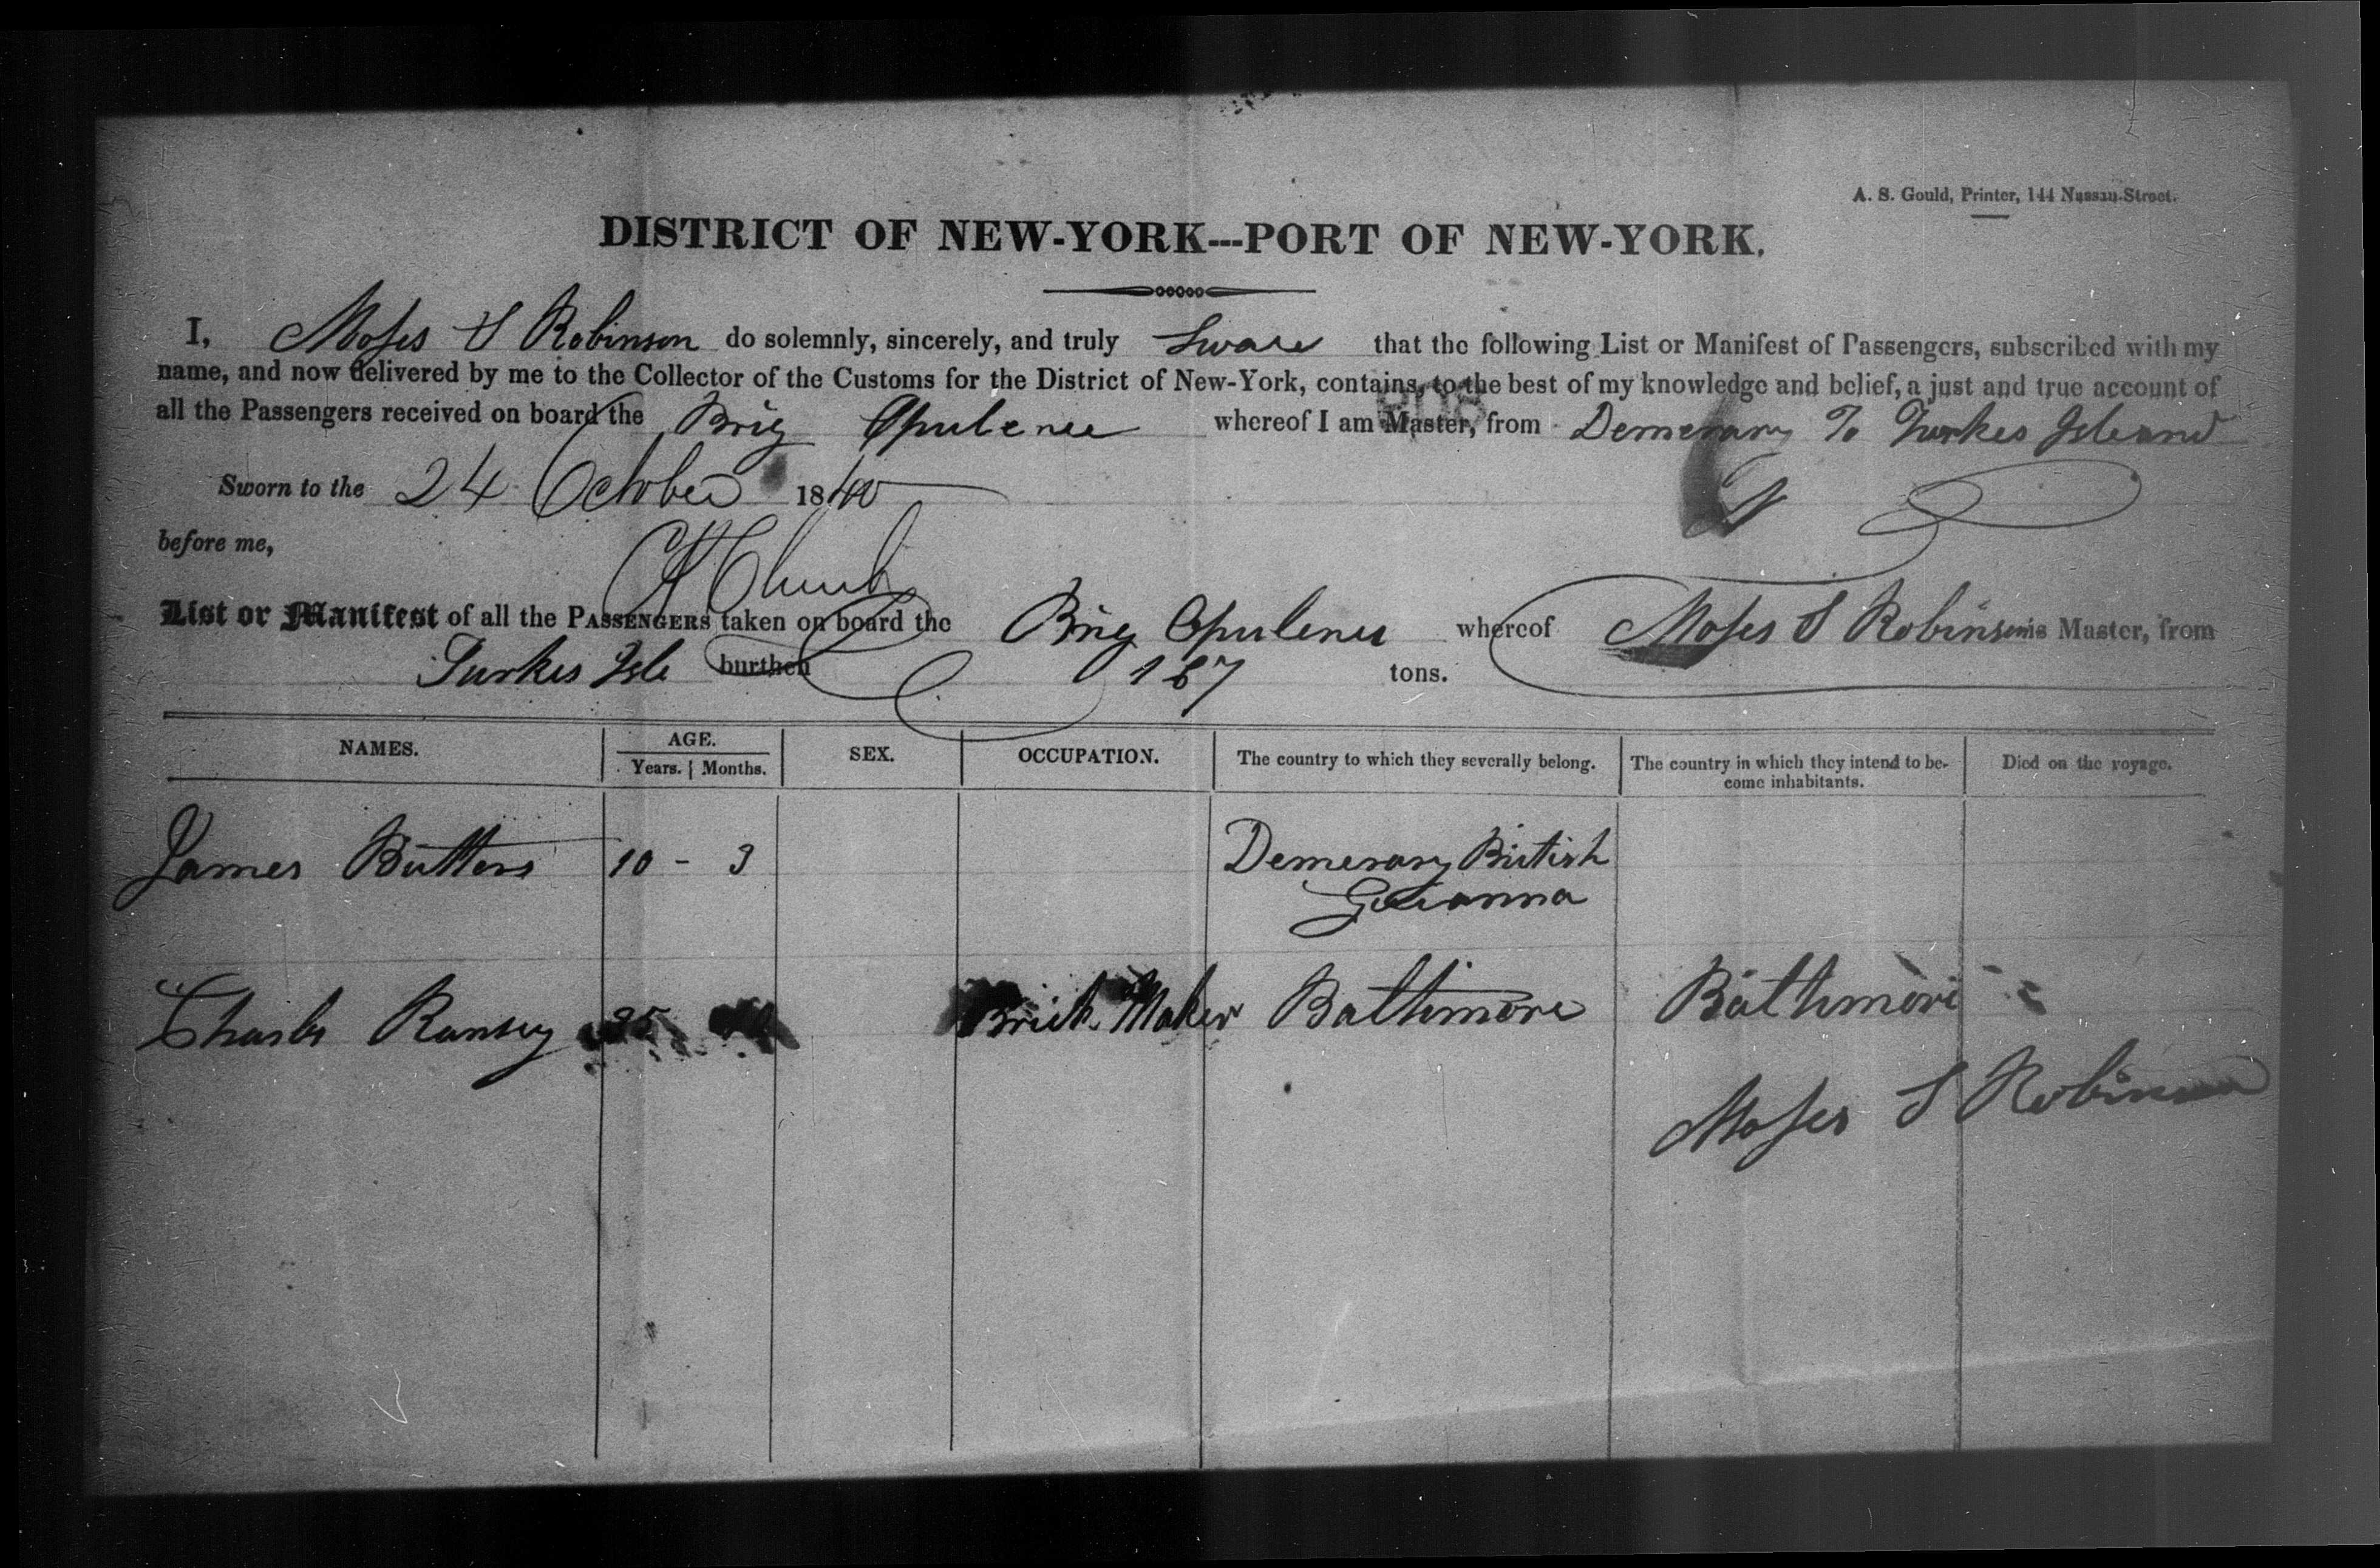 A. S. Gould, Printer, 144 Nassau-Street.
DISTRICT OF NEW-YORK---PORT OF NEW-YORK.
I, Moses S Robinson do solemnly, sincerely, and truly Sware that the following List or Manifest of Passengers, subscribed with my
name, and now delivered by me to the Collector of the Customs for the District of New-York, contains, to the best of my knowledge and belief, a just and true account of
all the Passengers received on board the Brig Opulence whereof I am Master, from Demerary To Turkes Island
Sworn to the 24 October 1840
before me,
List or Manifest of all the PASSENGERS taken on board the Brig Opulence whereof Moses S Robinson is Master, from
Turkes Isle burthen 167 tons.
NAMES. AGE. SEX. OCCUPATION. The country to which they severally belong. The country in which they intend to be-
Years. Months. come inhabitants. Died on the voyage.
James Butters 10 - 3 Demerary British
Guianna
Charls Ransey 25 Brick Maker Baltimore Baltimore
Moses S Robinson